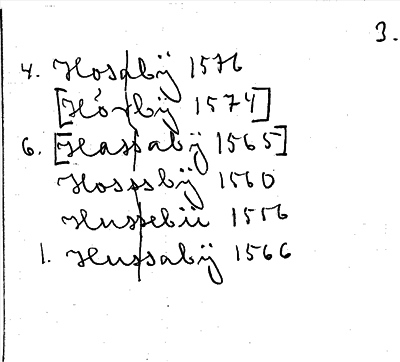 3.
4. Hosabÿ 1576
[Hórbÿ 1574]
6. [Hassabÿ 1565]
Hosssbÿ 1560
Hussebii 1556
1. Hussabÿ 1566